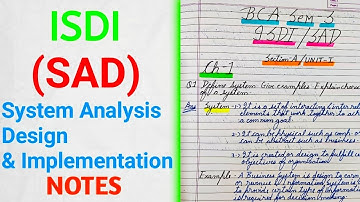 ISDI
(SAD)
System Analysis
Design
& Implementation
NOTES
BCA Sem 3
ISDI/SAD
Section A/UNIT-I
Ch-1
Q.1 Define System. Give examples. Explain charac
of a system.
Ans System -> 1) It is a set of interacting & inter rel
elements that work together to ach
a common goal.
2.) It can be physical such as comp. or
can be abstract such as business.
3.) It is created or design to fulfill
objectives of organization.
Example :- A Business System is design to earn
or pursue is information system is
to provide certain type of information
is required for decision making.